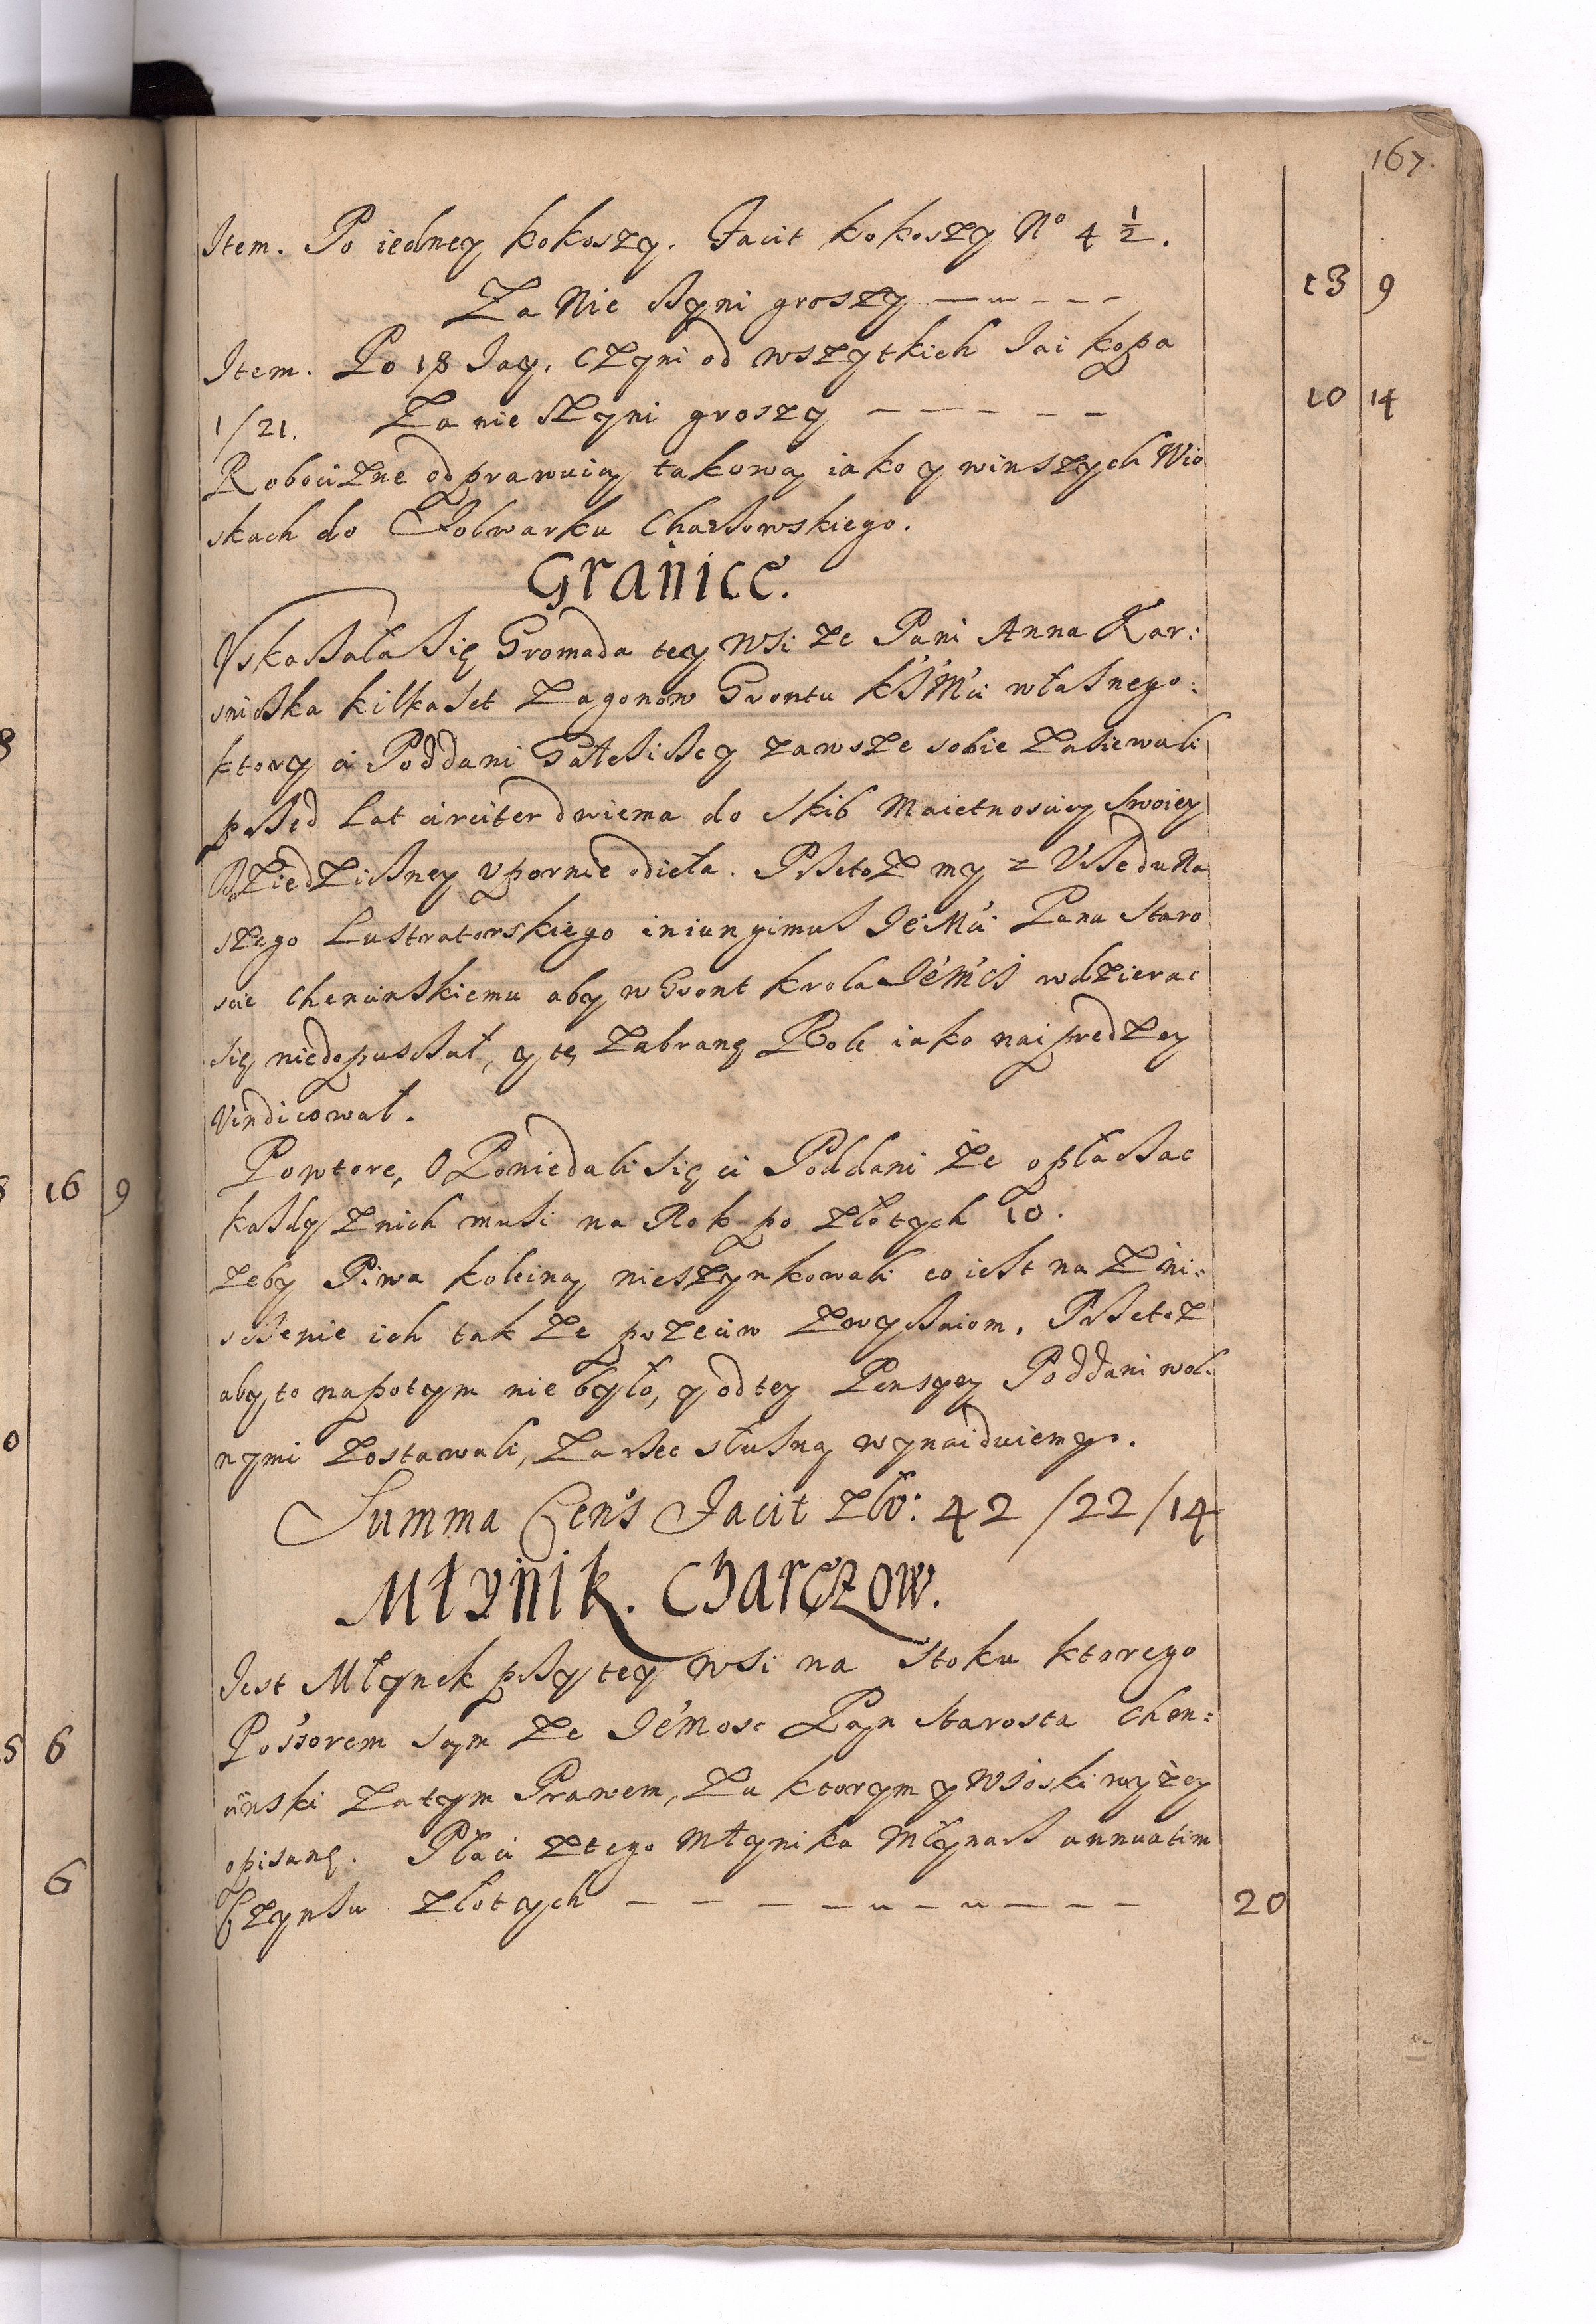 167.
Item. Po iedney kokoszy. Facit kokoszy No 4 1/2.
Za Nie czyni groszy — — — — 13 9
Item. Po 18 Jay, Czyni od wszytkich Jai kopa
1/21. Za nie Czyni groszy — — — — — 10 14
Robociznę odprawuią takową iako y winszych Wio
skach do Folwarku Charzowskiego.
Granice.
Uskarżała się Gromada tey Wsi że Pani Anna Kar:
snicka kilkaset Zagonow Grontu KJMci własnego:
ktory ci Poddani zawsze sobie Zasiewali
przed Lat circiter dwiema do Skib Maietnosciy Swoiey
Dziedziczney Upornie odieła. Przetoż my z Urzędu Na
szego Lustratorskiego iniungimus JeMci Panu Staro
scie Chencinskiemu aby w Gront krola JeMci wdzierac
się niedopuszczał, y tę Zabraną Rolę iako naiprędzey
Vindicował.
Powtore, Opowiedali się ci Poddani że opłaczac
kazdy z nich musi na Rok po złotych 10.
żeby Piwa koleiną nieszynkowali co iest na Zni:
sczenie ich tak że przeciw Zwyczaiom. Przetoż
aby to napotym nie było, y od tey Pensyey Poddani wol:
nymi Zostawali, Za rzec słuszną wynaiduiemy.
Summa Cens Facit Zło: 42/22/14
Młynik. Charęzow.
Jest Młynek przy tey Wsi na Stoku ktorego
Possorem sam że JeMosc Pan Starosta Chen:
cinski Za tym Prawem, Za ktorym y Wioski wyżey
opisane. Płaci z tego Młynika Młynarz annuatim
Czynszu złotych — — — — — — — — 20
8
16 9
0
5 6
6